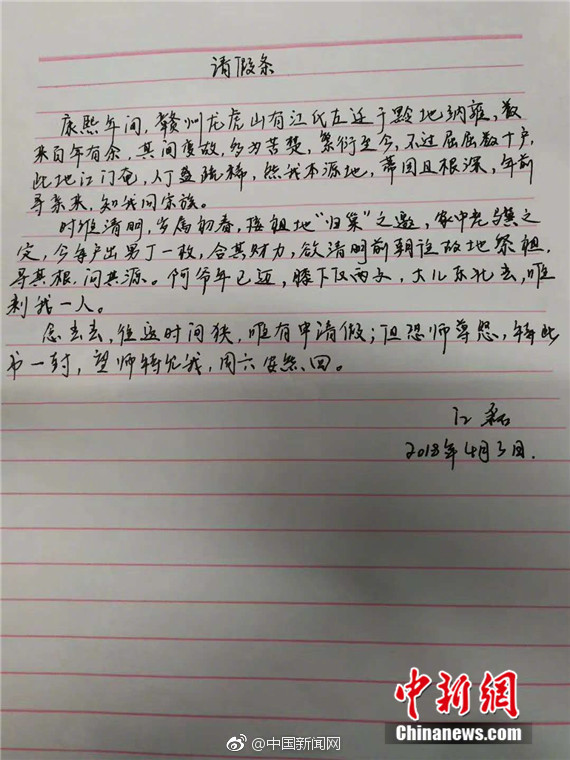 请假条
康熙年间，赣州龙虎山有江氏左迁于黔地纳雍，数
来百年有余，其间变故，多为苦楚，繁衍至今，不过屈屈数十户，
此地江门奄，人丁益疏稀，然我本源地，蒂固且根深，年前
寻亲来，知我同宗族。
时维清明，岁属初春，接祖地“归巢”之邀，家中老骥之
定，今每户出男丁一枚，合其财力，欲清明前朝往故地祭祖，
寻其根，问其源。阿爷年已迈，膝下仅两女，大儿东北去，唯
剩我一人。
念去去，往返时间狭，唯有申请假；但恐师尊怒，特此
书一封，望师特允我，周六安然回。
江磊
2018年4月3日.
中新网
Chinanews.com
@中国新闻网